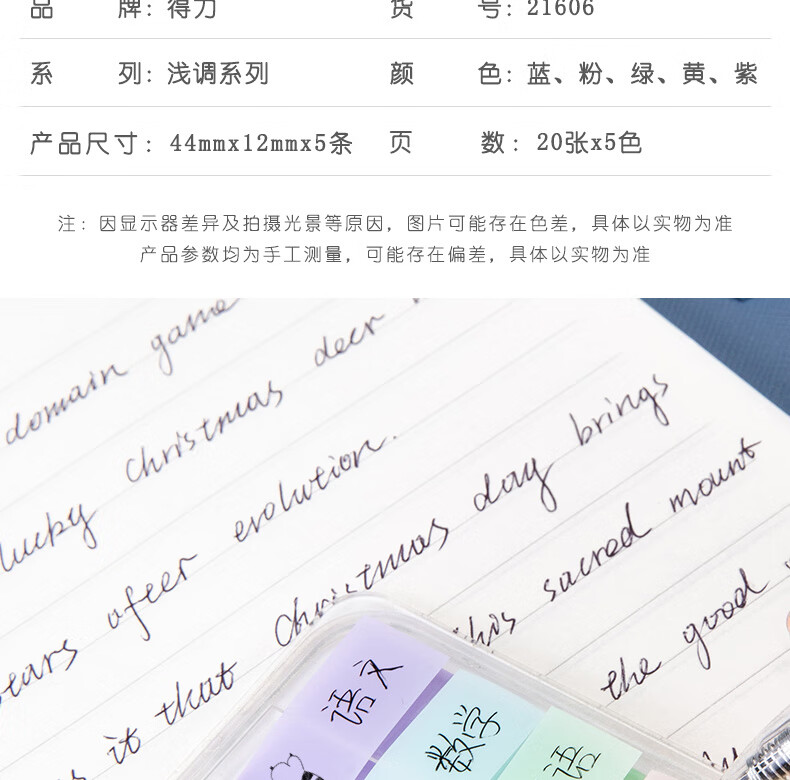 品 牌: 得力 货 号: 21606
系 列: 浅调系列 颜 色: 蓝、粉、绿、黄、紫
产品尺寸: 44mmx12mmx5条 页 数: 20张x5色
注: 因显示器差异及拍摄光景等原因, 图片可能存在色差, 具体以实物为准
产品参数均为手工测量, 可能存在偏差, 具体以实物为准
domain game
christmas deer
lucky
ofeer evolution.
Christmas day brings
it that
this sacred mount
the good
语文
数学
语